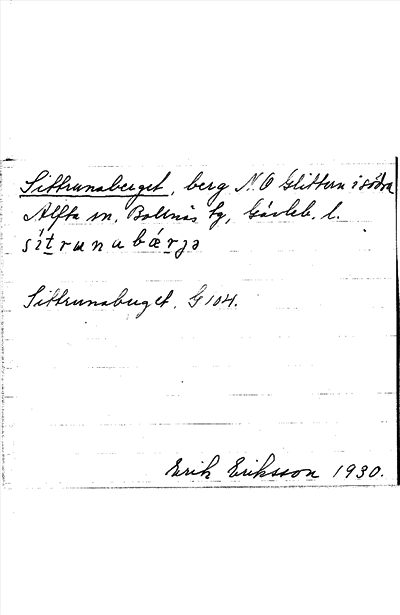 Sittrunaberget, berg N.O Glittern i södra
Alfta sn, Bollnäs tg, Gävleb. l.
sítrunubǽrjə
Sittrunaberget. G 104.
Erik Eriksson 1930.